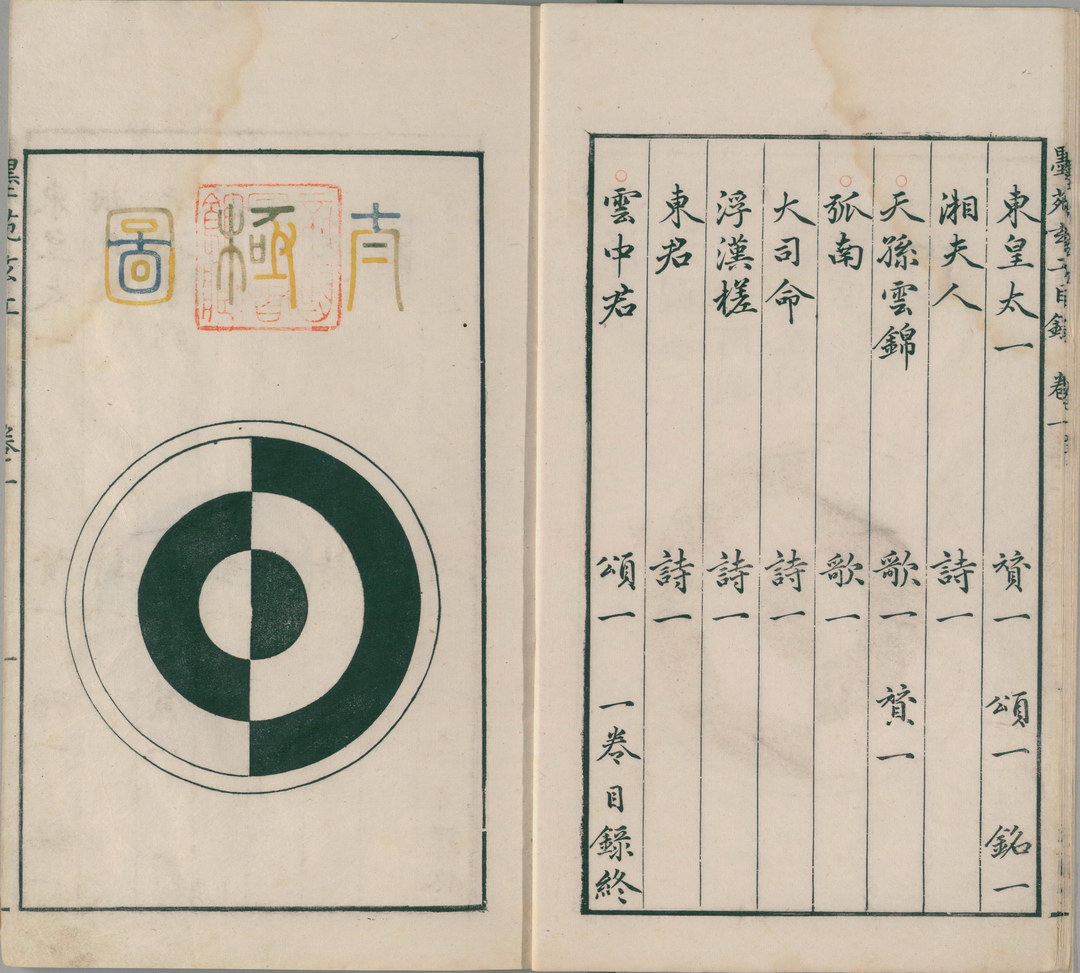 墨苑玄工目錄 卷一
東皇太一 賛一 頌一 銘一
湘夫人 詩一
天孫雲錦 歌一 賛一
弧南 歌一
大司命 詩一
浮漢槎 詩一
東君 詩一
雲中君 頌一 一卷目錄終
太極圖
墨苑玄工 卷一 一